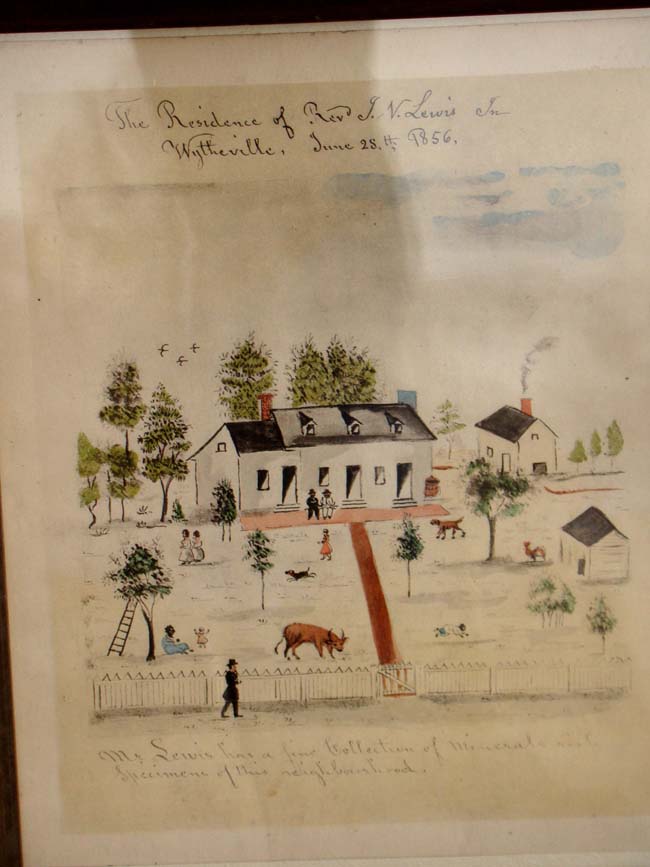 The Residence of Revd J. V. Lewis In
Wytheville, June 28.th 1856.
Mr Lewis has a fine Collection of Minerals
Specimens of this neighbourhood.